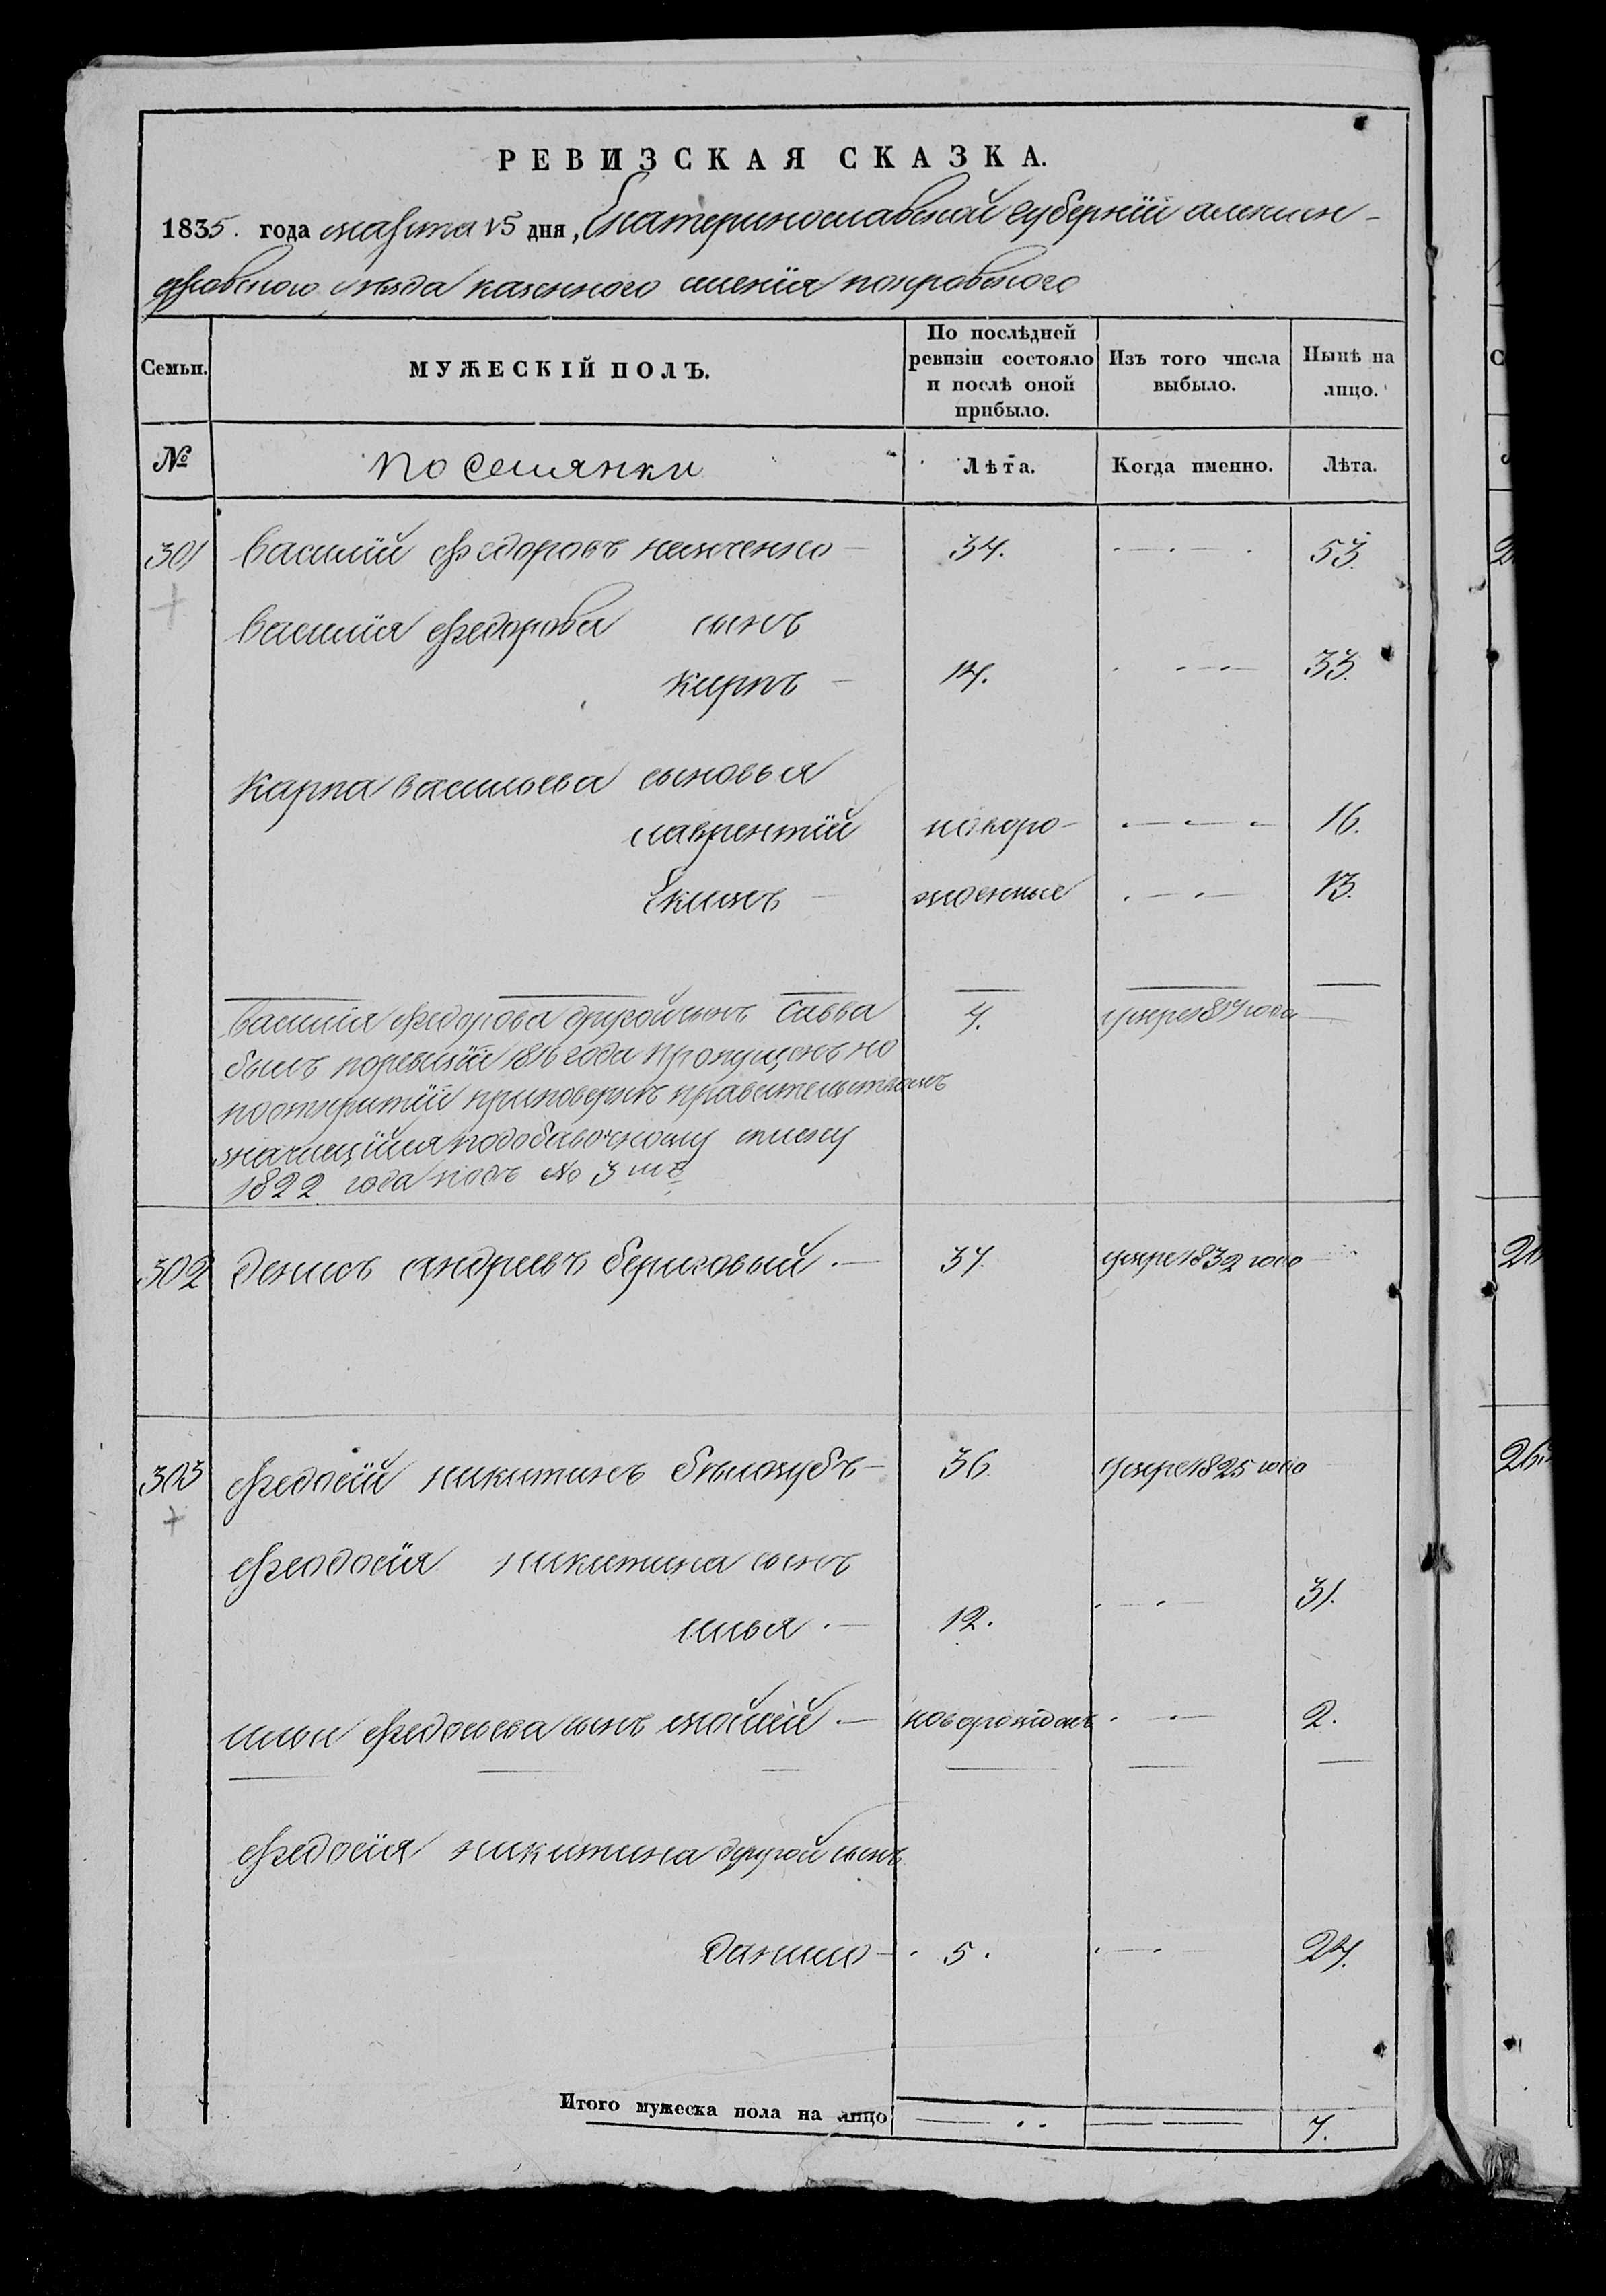 РЕВИЗСКАЯ СКАЗКА.
1835. года марта 15 дня, Екатеринославской губернїи алексан-
дровского уѣзда казенного имения покровского
Семьи.
МУЖЕСКІЙ ПОЛЪ.
По послѣдней ревизіи состояло и послѣ оной прибыло.
Изъ того числа выбыло.
Нынѣ на лицо.
№
поселянки
Лѣта.
Когда именно.
Лѣта.
301 Василїй федоровъ 34. 53.
Василїя федорова сынъ
карпъ 14. 33.
Карпа васильева сыновья
лаврентїй новоро- 16.
Екимъ жденные 13.
Василїя федорова другой сынъ Савва 4. умре 18 года
былъ поревизїи 1816 года пропущенъ но
пооткритїи приповеркѣ правительствомъ
значущїйся подобавочному списку
1822 года подъ № 3 мъ
302 денисъ андреевъ береговый 37. умре 1832 года
303 федосїй никитинъ бѣлозубъ 36. умре 1825 года
феодосїя никитина сынъ
илья 12. 31.
ильи федосьева сынъ мойсей новорожденъ 2.
федосїя никитина другой сынъ
данило 5. 24.
Итого мужеска пола на лицо 7.
2
20
26